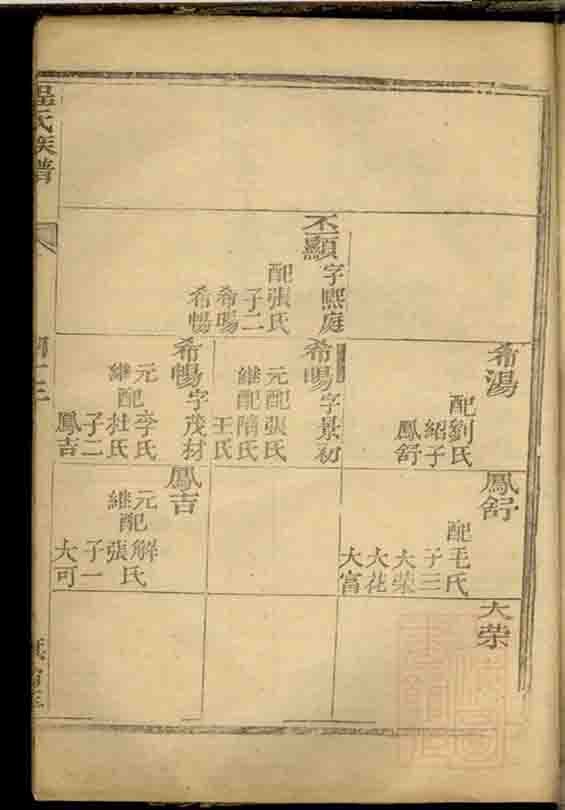 丕顯字熙庭
配張氏
子二
希暘
希暢
希湯
配劉氏
紹子
鳳舒
希暘字景初
元配張氏
繼配隋氏
王氏
希暢字茂材
元配李氏
繼配杜氏
子二
鳳吉
鳳舒
配毛氏
子三
大榮
大花
大富
鳳吉
元配解氏
繼配張氏
子一
大可
大荣
氏族譜